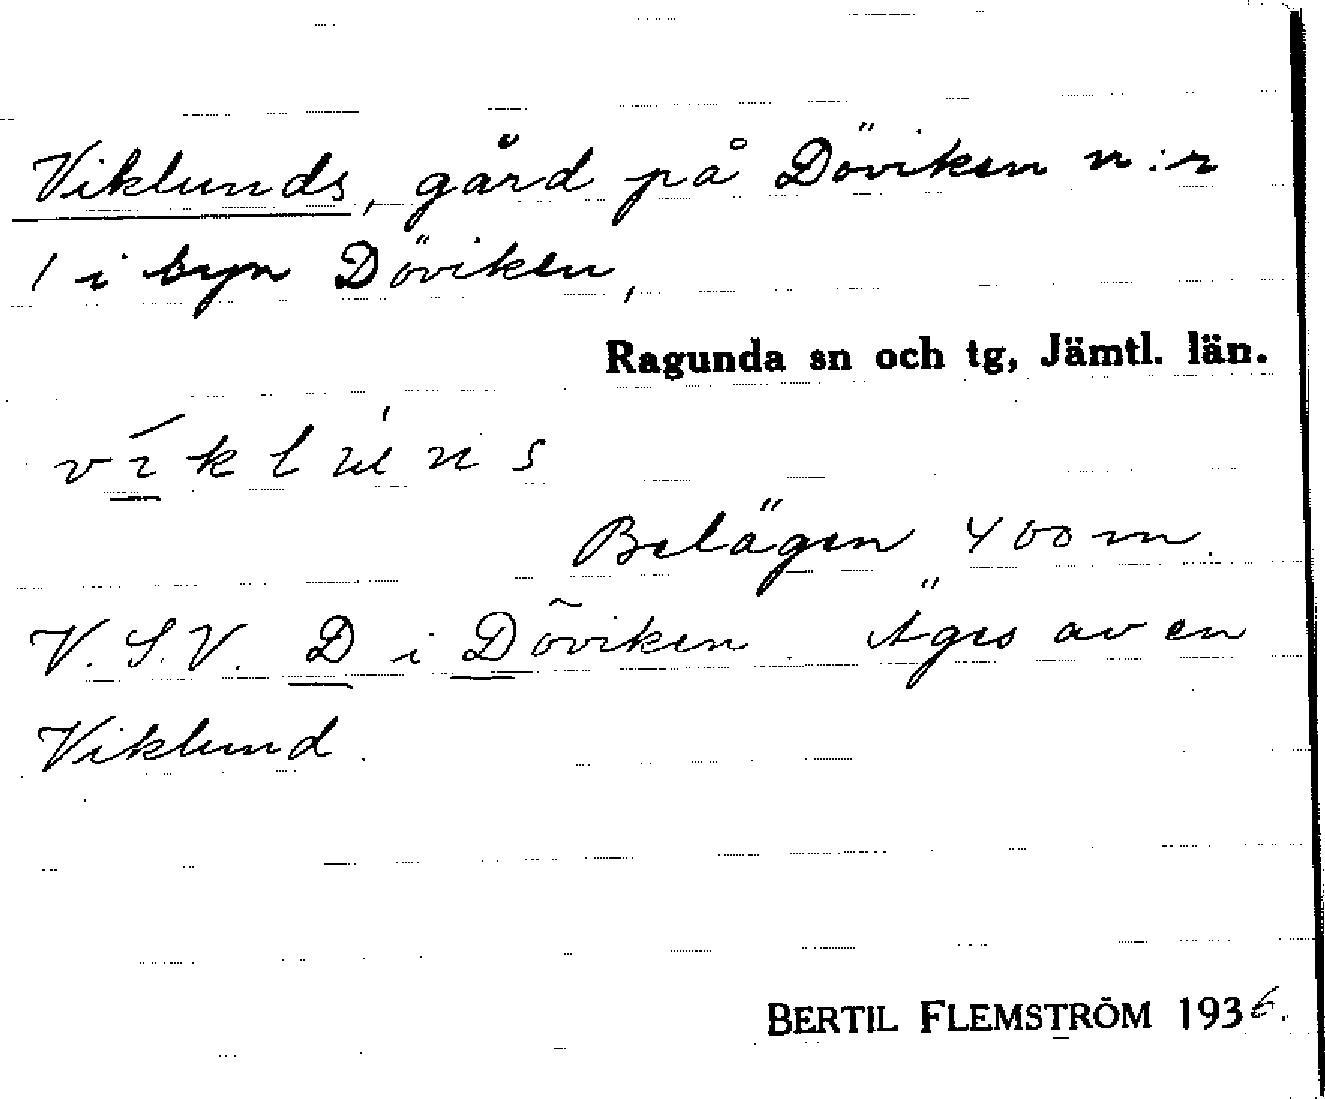 Viklunds, gård på Döviken n:r
1 i byn Döviken,
Ragunda sn och tg, Jämtl. län.
víkluns
Belägen 400 m.
V.S.V. D i Döviken. Äges av en
Viklund.
BERTIL FLEMSTRÖM 1936.